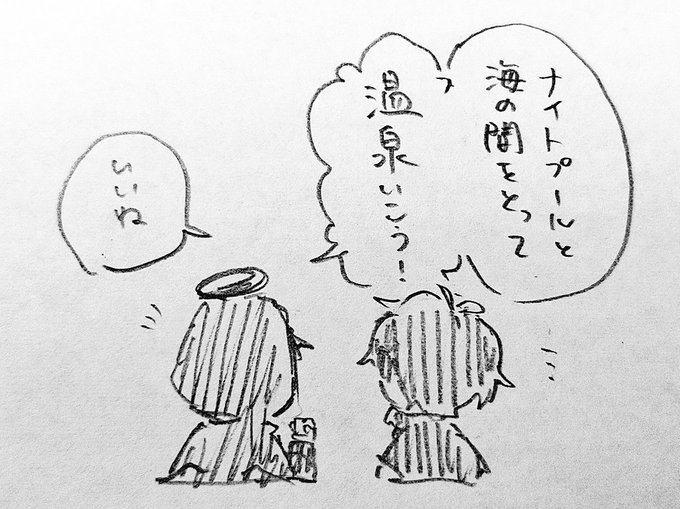 ナイトプールと
海の間をとって
温泉いこう!
いいね